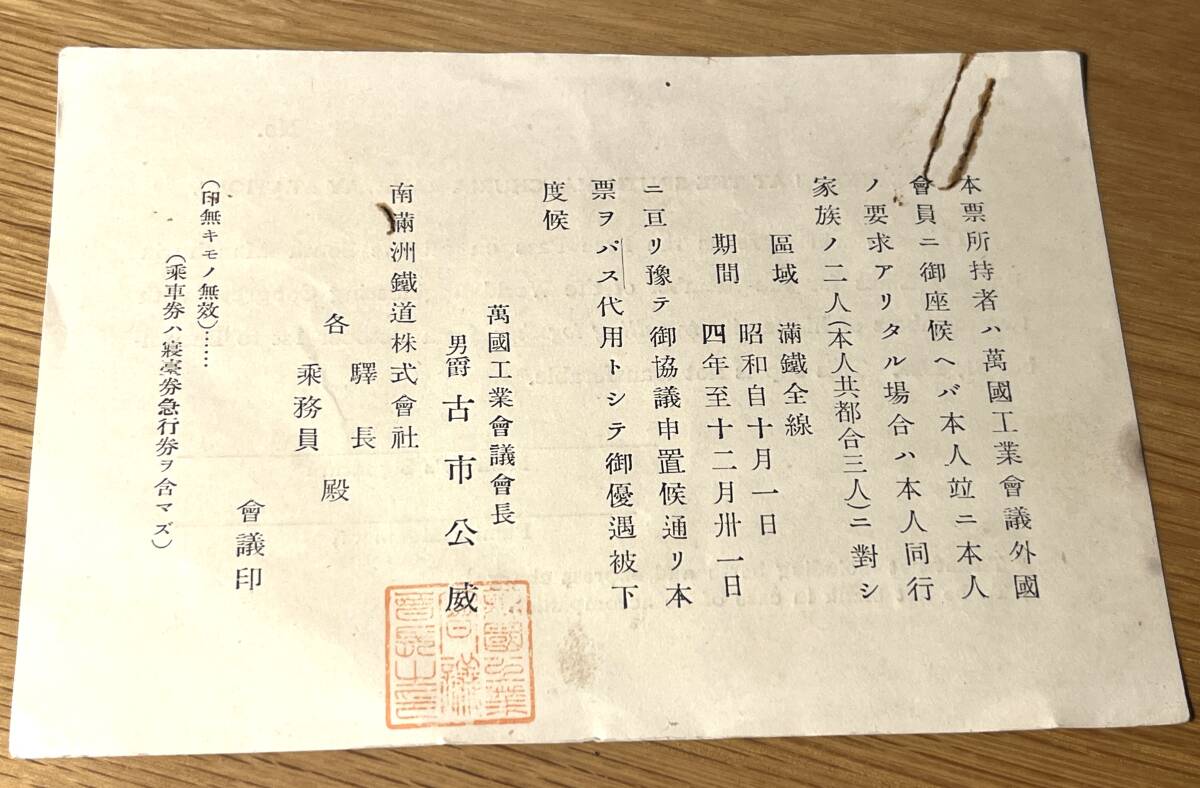 本票所持者ハ萬國工業會議外國
會員ニ御座候ヘバ本人竝ニ本人
ノ要求アリタル場合ハ本人同行
家族ノ二人(本人共都合三人)ニ對シ
區域 滿鐵全線
期間 昭和自十月一日
四年至十二月卅一日
ニ亘リ豫テ御協議申置候通リ本
票ヲバス代用トシテ御優遇被下
度候
萬國工業會議會長
男爵 古市公威
南滿洲鐵道株式會社
各驛長
乘務員
殿
會議印
(印無キモノ無效)……
(乘車券ハ寢臺券急行券ヲ含マズ)
萬國工業
會議
會長之印